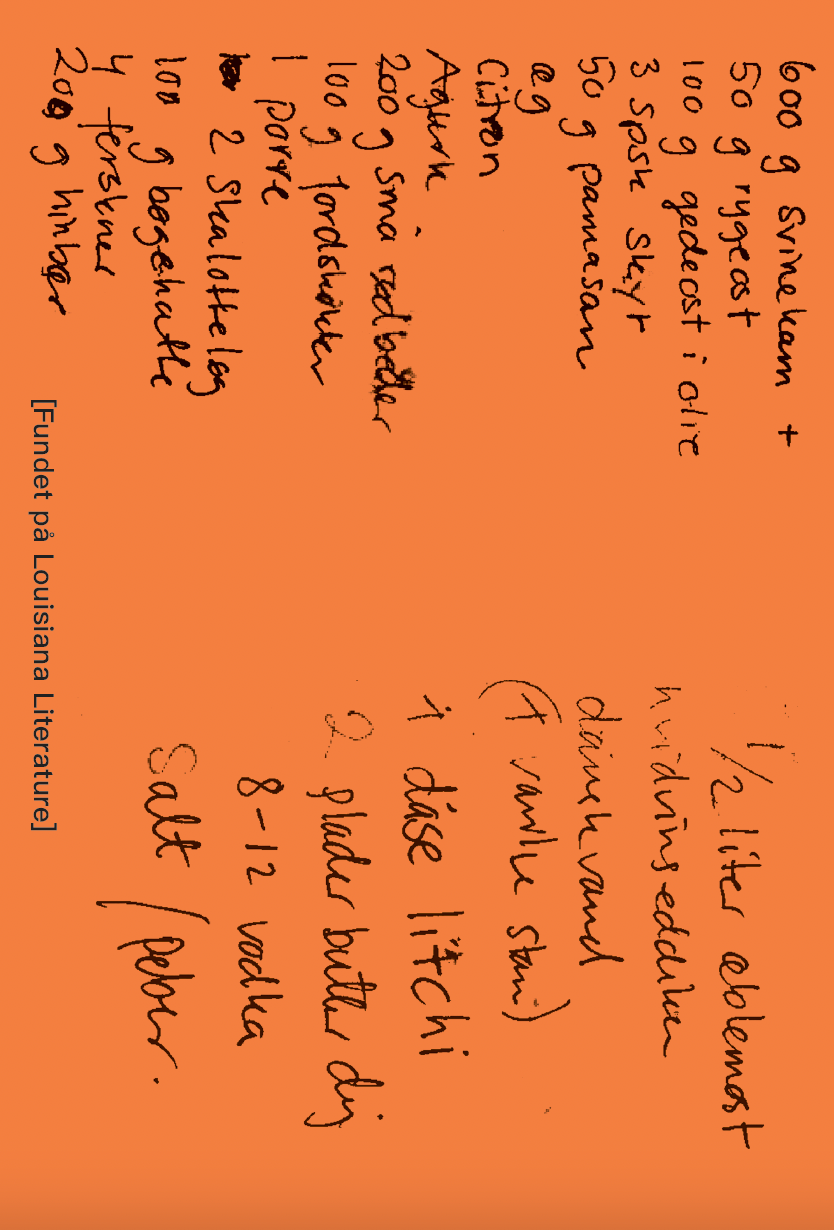 600 g svinekam +
50 g rygeost
100 g gedeost i olie
3 spsk skyr
50 g pamasan
æg
Citron
Agurk
200 g små rødbeder
100 g jordskokker
1 porre
2 skalotteløg
100 g bøgehatte
4 ferskner
200 g hinbær
1/2 liter æblemost
hvidvinseddike
danskvand
(1 vanille stan)
1 dåse litchi
2 plader butter dej
8-12 vodka
Salt / peber.
[Fundet på Louisiana Literature]